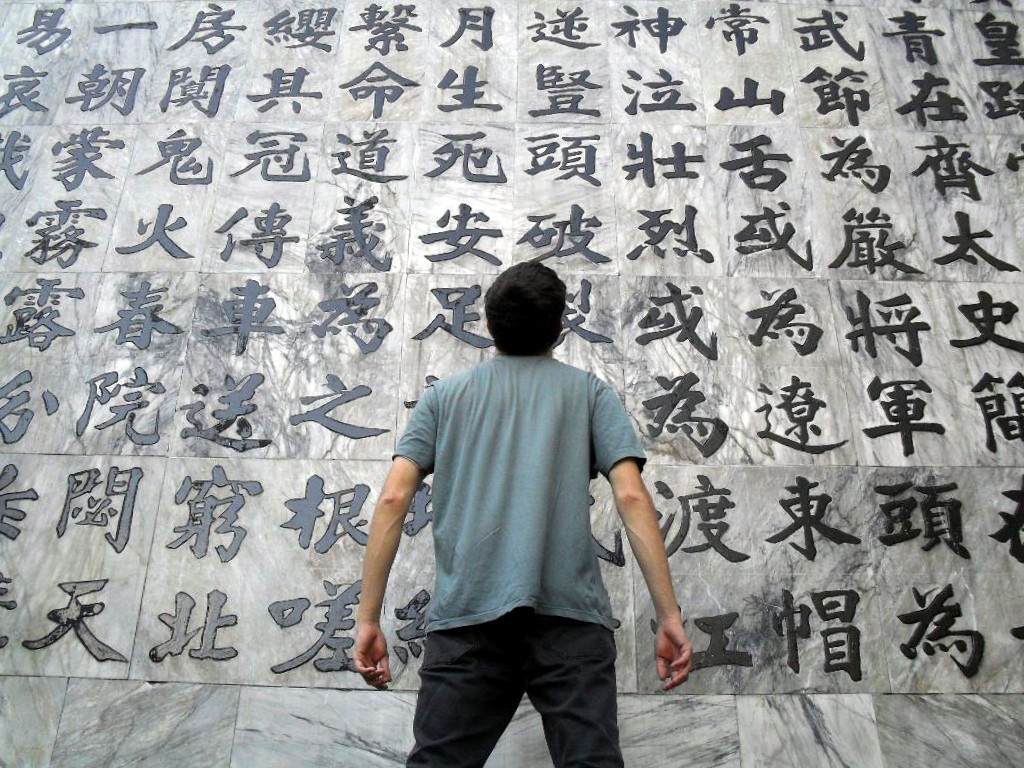 皇路
青在齊太史簡在
武節為嚴將軍頭為
常山舌或為遼東帽
神泣壯烈或為渡江
逆豎頭破裂
月生死安足
繫命道義為之根嗟
纓其冠傳車送窮北
房闃鬼火春院閟天
一朝蒙霧露分作
易哀哉